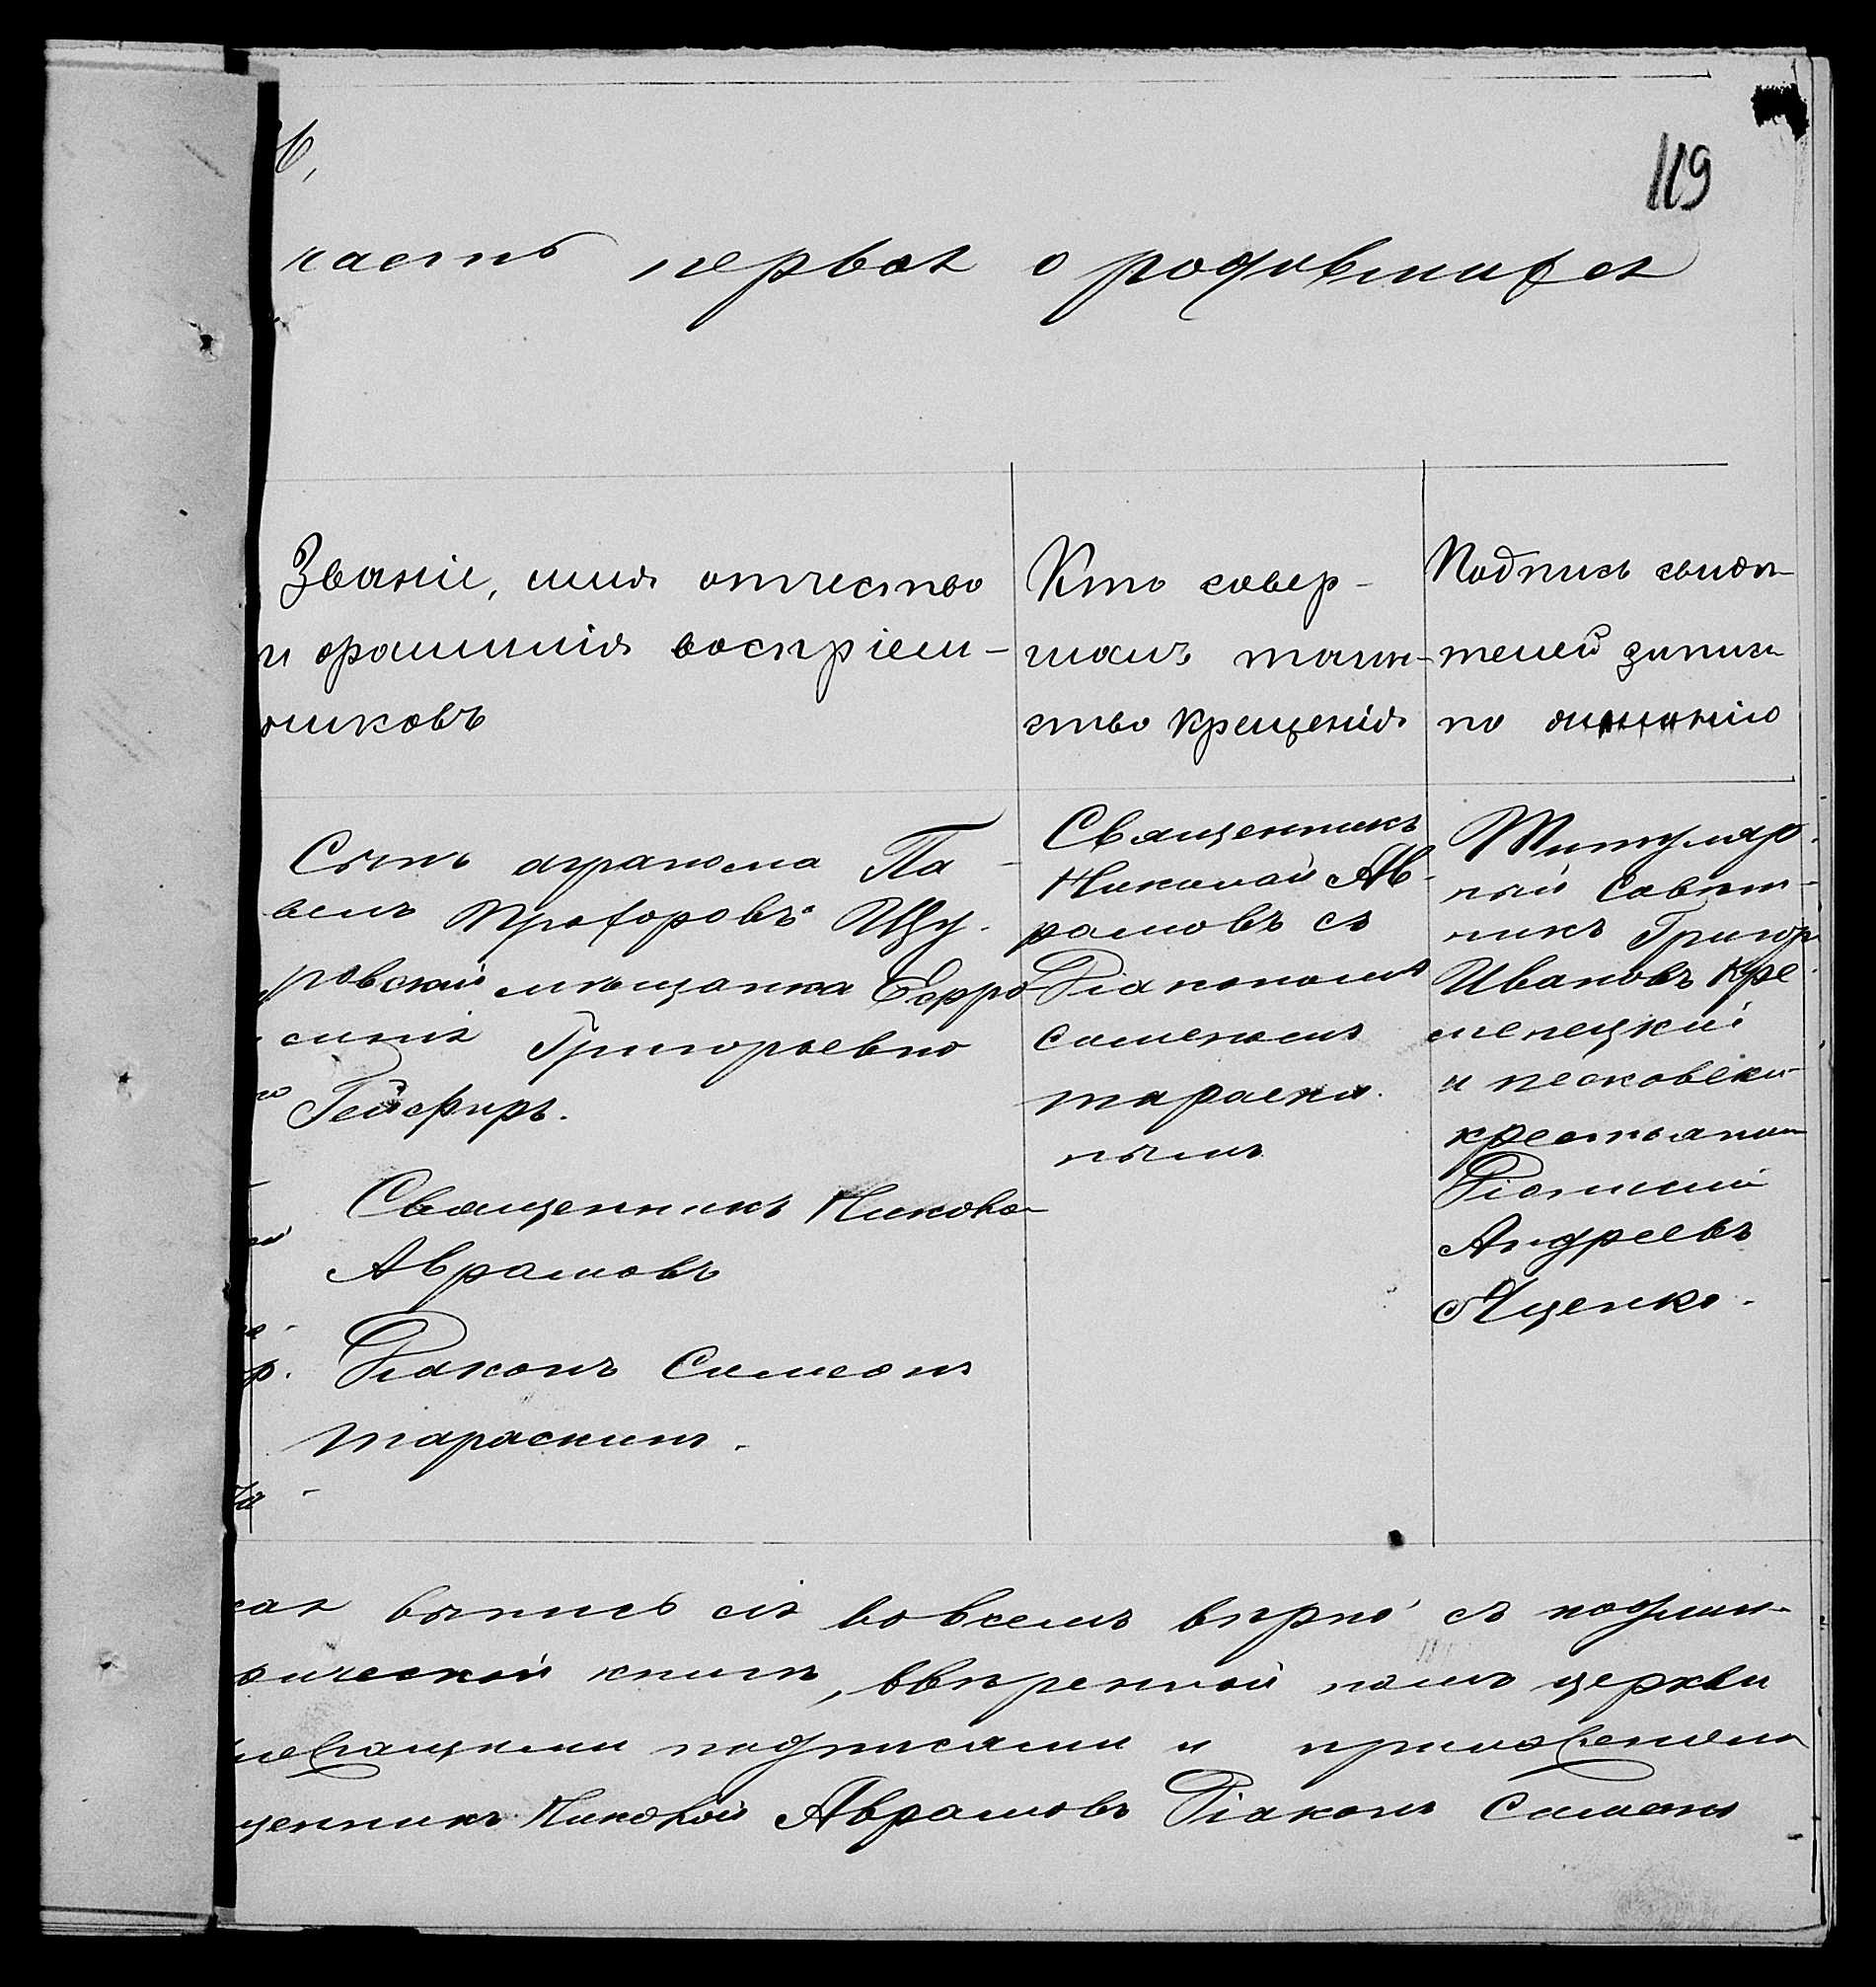 119
часть первая о родившихся
Званіе, имя отчество
и фамилія воспріем-
никовъ
Кто совер-
шалъ таин-
ство крещенія
Подпись свидѣ-
телей записи
по желанію
Сынъ агранома Па-
велъ Прохоровъ Щу-
ровскій мѣщанка Евфро
синія Григорьевна
Гейсфиръ.
Священникъ Николай
Аврамовъ
Діаконъ Симеонъ
Тараскинъ.
Священникъ
Николай Ав-
рамовъ съ
Діакономъ
Симеономъ
Тараски-
нымъ
Титуляр-
ный Совѣт-
никъ Григор
Ивановъ Кре
менецкій
и песковскій
крестьянин
Діонисий
Андреевъ
Яценко.
выпись съ во всемъ вѣрно съ подлин-
рической книги, ввѣренной намъ церкви
подписями и приложеніем
щенникъ Николай Аврамовъ Діаконъ Симеонъ